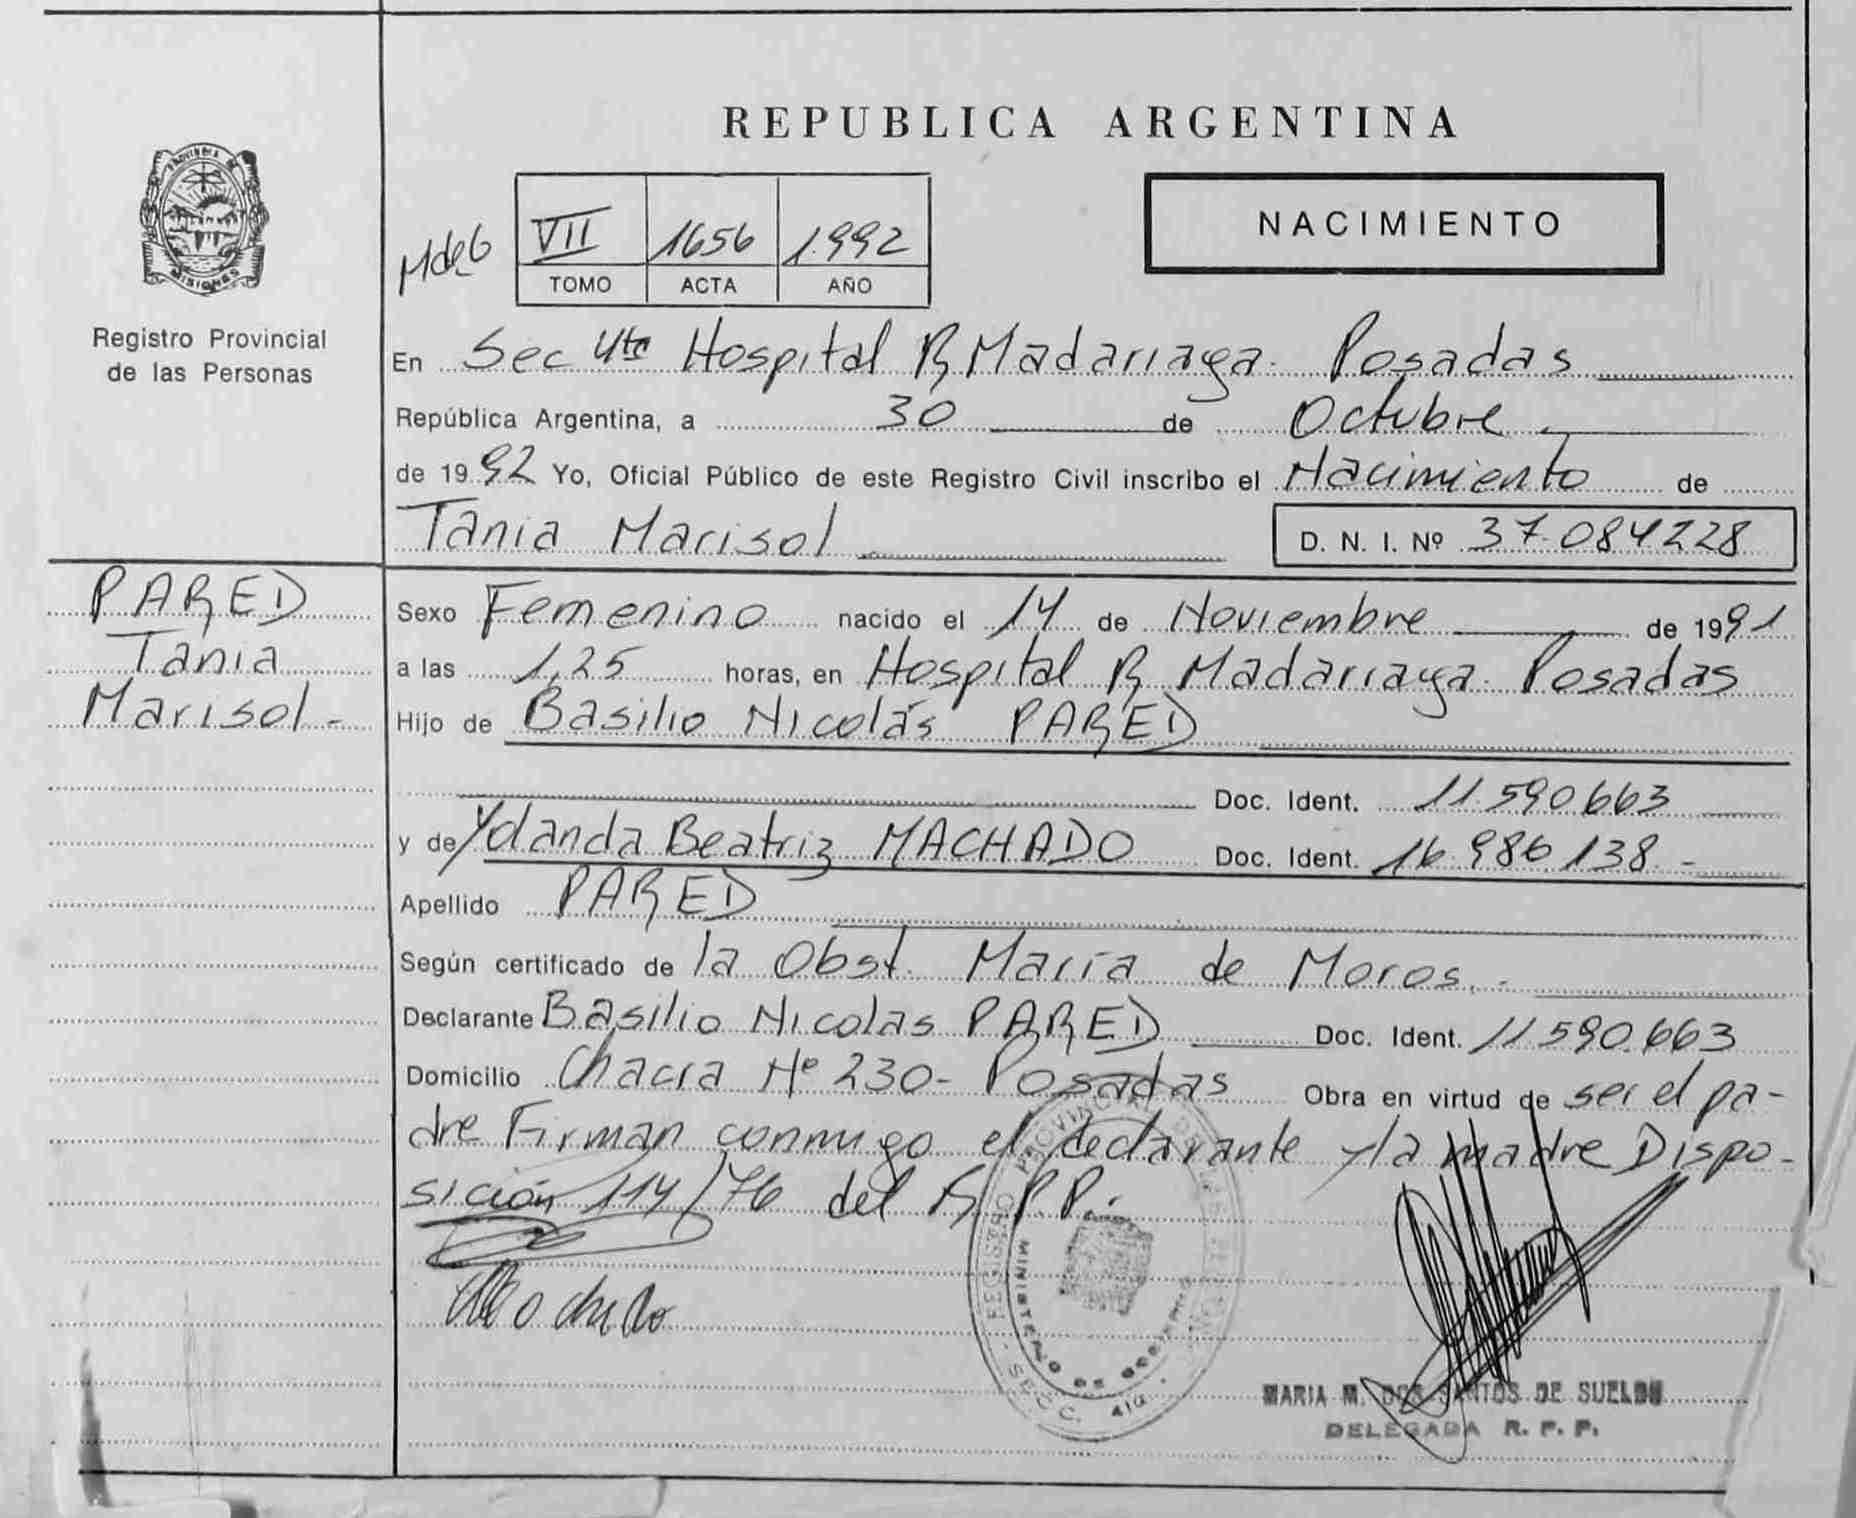 REPUBLICA ARGENTINA
PROVINCIA DE
MISIONES
Registro Provincial
de las Personas
VII 1656 1.992
TOMO ACTA AÑO
NACIMIENTO
En Sec 4ta Hospital R Madariaga. Posadas
República Argentina, a 30 de Octubre
de 1992 Yo, Oficial Público de este Registro Civil inscribo el Nacimiento de
Tania Marisol D. N. I. Nº 37.084228
PARED
Tania
Marisol-
Sexo Femenino nacido el 14 de Noviembre de 1991
a las 1,25 horas, en Hospital R Madariaga. Posadas
Hijo de Basilio Nicolás PARED
Doc. Ident. 11.590.663
y de Yolanda Beatriz MACHADO Doc. Ident. 16.986.138.-
Apellido PARED
Según certificado de la Obst. María de Moros.-
Declarante Basilio Nicolas PARED Doc. Ident. 11.590.663
Domicilio Chacra Nº 230- Posadas Obra en virtud de ser el pa-
dre Firman conmigo el declarante y la madre Dispo-
sición 114/76 del R.P.P.
Machado
REGISTRO PROVINCIAL DE LAS PERSONAS
MINISTERIO DE GOBIERNO
SECC. 4ta.
MARIA M. DOS SANTOS DE SUELDO
DELEGADA R. P. P.